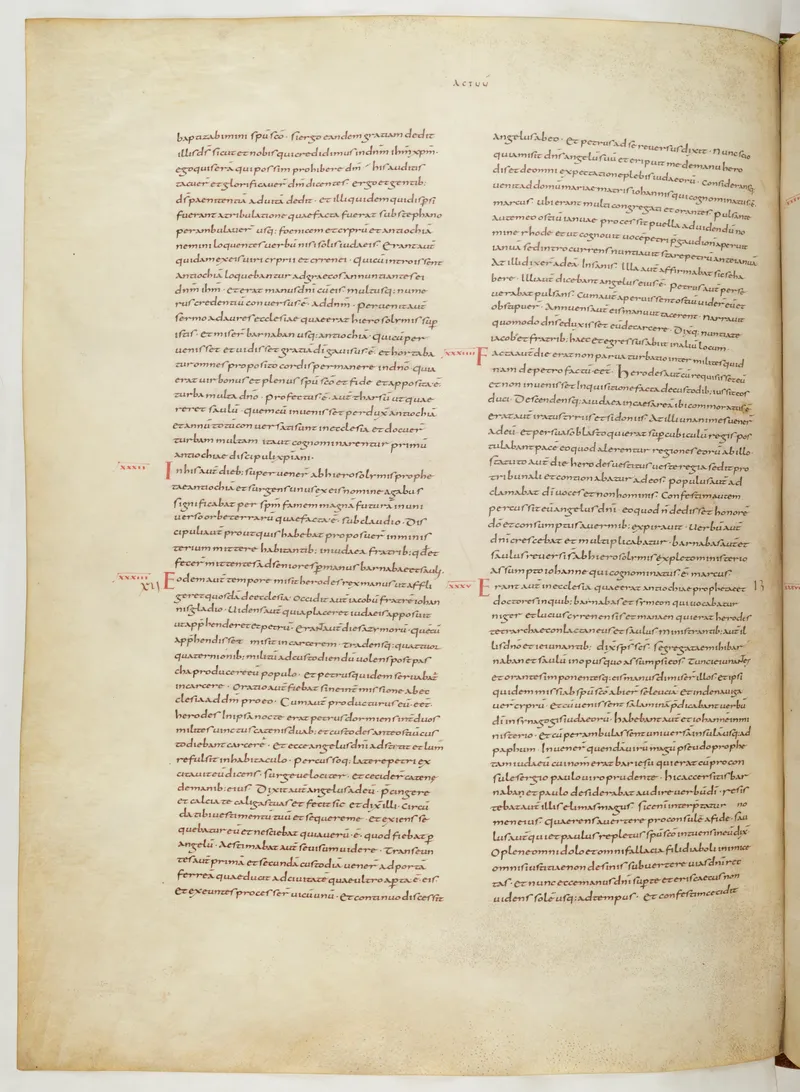 ACTUU
baptizabimini spu sco · si ergo eandem gratiam dedit
illis ds sicut et nobis qui credidimus in dnm ihm xpm ·
ego quis era qui possim prohibere dm · his auditis
tacuer et glorificauer dm dicentes · ergo et gentib;
ds paenitentia ad uita dedit · et illi quidem qui dispsi
fuerant a tribulatione quae facta fuerat sub stephano
perambulauer usq; foenicem et cypru et antiochia
nemini loquentes uerbu nisi solis iudaeis · Erant aut
quidam ex eis uiri cyprii et cyrenei · qui cu introissent
antiochia loquebantur ad graecos annuntiantes ei
dnm ihm · et erat manus dni cu eis multusq; nume
rus credentiu conuersus e · ad dnm · peruenit aut
sermo ad aures ecclesiae quae erat hierosolymis sup
istis · et miser barnaban usq; antiochia · qui cu per
uenisset et uidisset gratia di gauisus e · et hortaba
tur omnes proposito cordis permanere in dno · quia
erat uir bonus et plenus spu sco et fide · et apposita e ·
turba multa dno · profectus e · aut tharsu ut quae
reret saulu · quem cu inuenisset perdux antiochia
et annu totu conuersati sunt in ecclesia et docuer
turbam multam ita ut cognominarentur primu
antiochiae discipuli xpiani ·
xxxii In his aut dieb; superuener ab hierosolymis prophe
tae antiochia et surgens unus ex eis nomine agabus
significabat per spm famem magna futura in uni
uerso orbe terraru quae facta e · sub claudio · Dis
cipuli aut prout quis habebat proposuer in minis
terium mittere habitantib; in iudaea fratrib; qd et
fecer mittentes ad seniores p manus barnabae et sauli ·
xxxiii XII Eodem aut tempore misit herodes rex manus ut affli
geret quosda de ecclesia · Occidit aut iacobu fratre iohan
nis gladio · Uidens aut quia placeret iudaeis apposuit
ut apphenderet et petru · Erant aut dies azymoru · que cu
apphendisset misit in carcerem · tradens q; quattuor
quaternionib; militu ad custodiendu uolens post pas
cha producere eu populo · et petrus quidem seruabat
in carcere · Oratio aut fiebat sine intmissione ab ec
clesia ad dm pro eo · Cum aut producturus eu · eet ·
herodes in ipsa nocte erat petrus dormiens int duos
milites uinctus catenis duab; et custodes ante ostiu cus
todiebant carcere · Et ecce angelus dni adstitit et lum
refulsit in habitaculo · percussoq; latere petri ex
citauit eu dicens · surge uelociter · et cecider catene
de manib; eius · Dixit aut angelus ad eu · pcingere
et calcia te caligas tuas et fecit sic · et dix illi · Circu
da tibi uestimentu tuu et sequere me · et exiens se
quebatur eu et nesciebat quia ueru · e · quod fiebat p
angelu · Aestimabat aut se uisum uidere · Transeun
tes aut prima et secunda custodia uener ad porta
ferrea quae ducit ad ciuitate quae ultro apta e · eis
Et exeuntes processer uicu unu · et continuo discessit
angelus ab eo · Et petrus ad se reuersus dixit · Nunc scio
quia misit dns angelu suu et eripuit me de manu hero
dis et de omni expectatione plebis iudaeoru · Consideransq;
uenit ad domu mariae matris iohannis qui cognominatus e ·
marcus · ubi erant multi congregati et orantes pulsante
aut eo ostiu ianuae processit puella ad uidendu no
mine rhode et ut cognouit uoce petri p gaudio n aperuit
ianua sed intro currens nuntiauit stare petru ante ianua ·
At illi dixer ad ea · Insanis · Illa aut affirmabat sic se ha
bere · Illi aut dicebant angelus eius e · petrus aut perse
uerabat pulsans · Cum aut aperuissent ostiu uider eu et
obstipuer · Annuens aut eis manu ut tacerent narrauit
quomodo dns eduxisset eu de carcere · Dixq; nuntiate
iacob et fratrib; haec et egressus abiit in aliu locum ·
xxxiiii Facta aut die erat non parua turbatio inter milites quid
nam de petro factu eet · Herodes aut cu requisisset eu
et non inuenisset Inquisitione facta de custodib; iussit eos
duci · Descendensq; a iudaea in caesarea ibi commoratus e ·
erat aut iratus tyriis et sidoniis At illi unanimes uener
ad eu · et persuaso blasto qui erat sup cubiculu regis pos
tulabant pace eo quod alerentur regiones eoru ab illo ·
statuto aut die herodes uestitus ueste regia sedit pro
tribunali et contionabatur ad eos · populus aut ad
clamabat di uoces et non hominis · Confestim autem
percussit eu angelus dni · eo quod n dedisset honore
do et consumptus a uermib; expirauit · Uerbu aut
dni crescebat et multiplicabatur · barnabas aut et
saulus reuersi s ab hierosolimis expleto ministerio
assumpto iohanne qui cognominatus e · marcus ·
xxxv Erant aut in ecclesia quae erat antiochiae prophetae et 13
doctores in quib; barnabas et symeon qui uocabatur
niger et lucius cyrenensis et manaen qui erat herodis
tetrarchae conlactaneus et saulus ministrantib; aut il
lis dno et ieiunantib; dix sps scs · segregate mihi bar
naban et saulu in opus quo assumpsi eos · Tunc ieiunates
et orantes imponentesq; eis manus dimiser illos et ipsi
quidem missi ab spu sco abier seleucia · et inde nauiga
uer cypru · Et cu uenissent salamina pdicabant uerbu
di in synagogis iudaeoru · habebant aut et iohanne in mi
nisterio · Et cu perambulassent uniuersa insula usq; ad
paphum · Inuener quenda uiru magu pseudo prophe
tam iudaeu cui nom erat bariesu qui erat cu procon
sule sergio paulo uiro prudente · hic accersitis bar
naban et paulo desiderabat audire uerbu di · resis
tebat aut illis elimas magus · sic eni interptatur no
men eius · Quaerens auertere proconsule a fide · sau
lus aut qui et paulus repletus spu sco intuens in eu dix ·
O plene omni dolo et omni fallacia fili diaboli inimice
omnis iustitiae non desinis subuertere uias dni rec
tas · Et nunc ecce manus dni sup te et eris caecus non
uidens sole usq; ad tempus · Et confestim cecidit